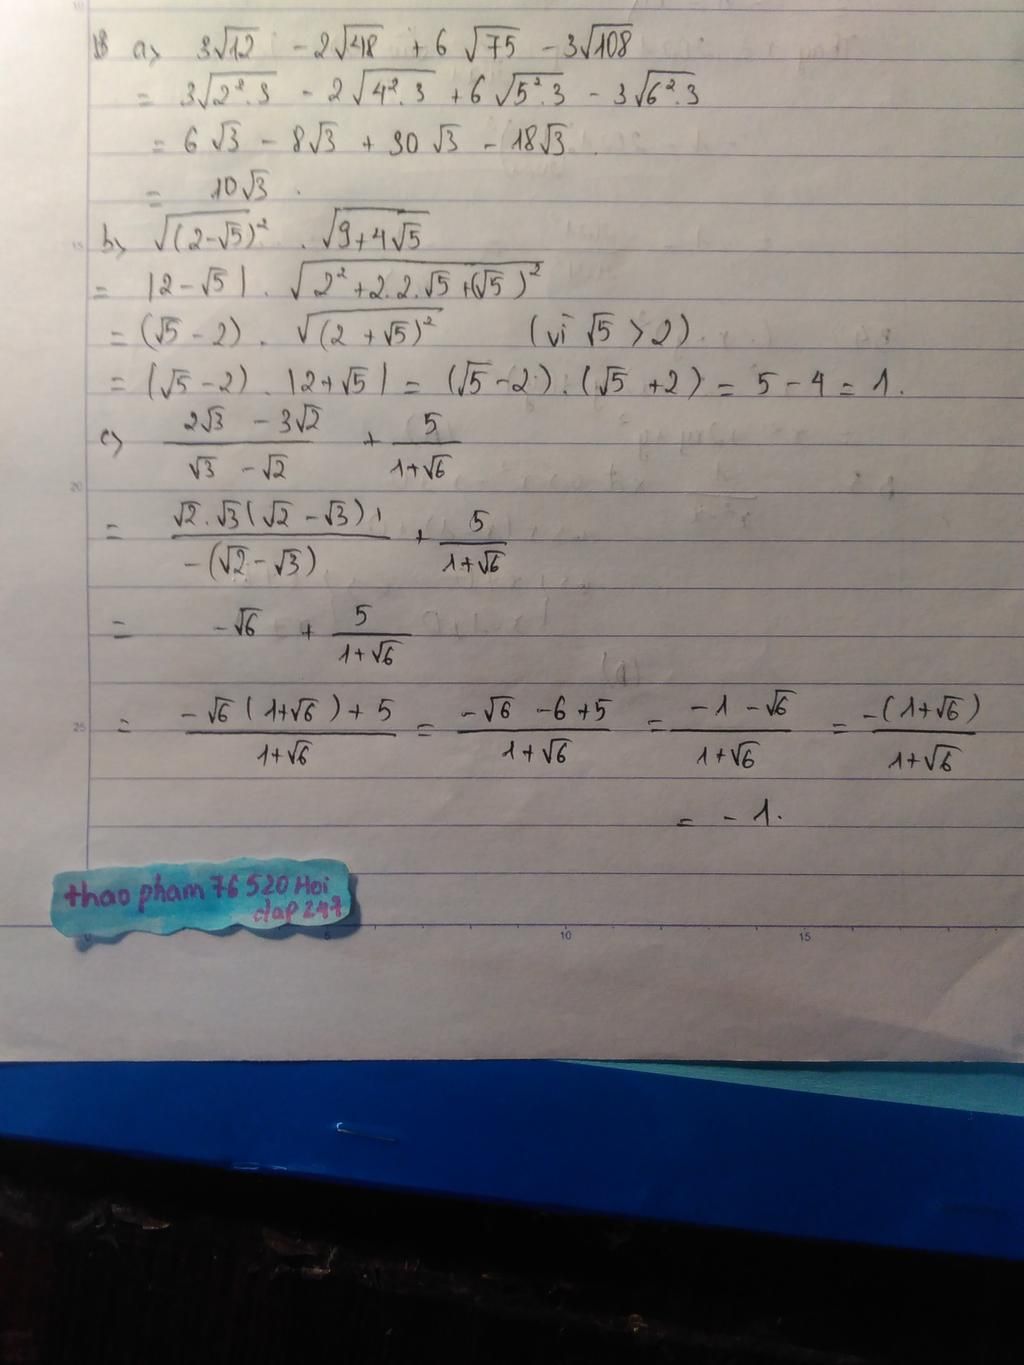 a) 3√12 - 2√48 + 6 √75 - 3√108
= 3√2².3 - 2√4².3 + 6√5².3 - 3√6².3
= 6√3 - 8√3 + 30√3 - 18√3
= 10√3.
b) √(2-√5)² . √9+4√5
= |2-√5| . √2²+2.2.√5+(√5)²
= (√5-2) . √(2+√5)² (vì √5 > 2).
= (√5-2) . |2+√5| = (√5-2).(√5+2) = 5-4 = 1.
c) (2√3 - 3√2)/(√3 - √2) + 5/(1+√6)
= √2.√3(√2-√3)/-(√2-√3) + 5/(1+√6)
= -√6 + 5/(1+√6)
= (-√6(1+√6)+5)/(1+√6) = (-√6-6+5)/(1+√6) = (-1-√6)/(1+√6) = -(1+√6)/(1+√6)
= -1.
thao pham 76 520 Hoi
dap 247
5 10 15